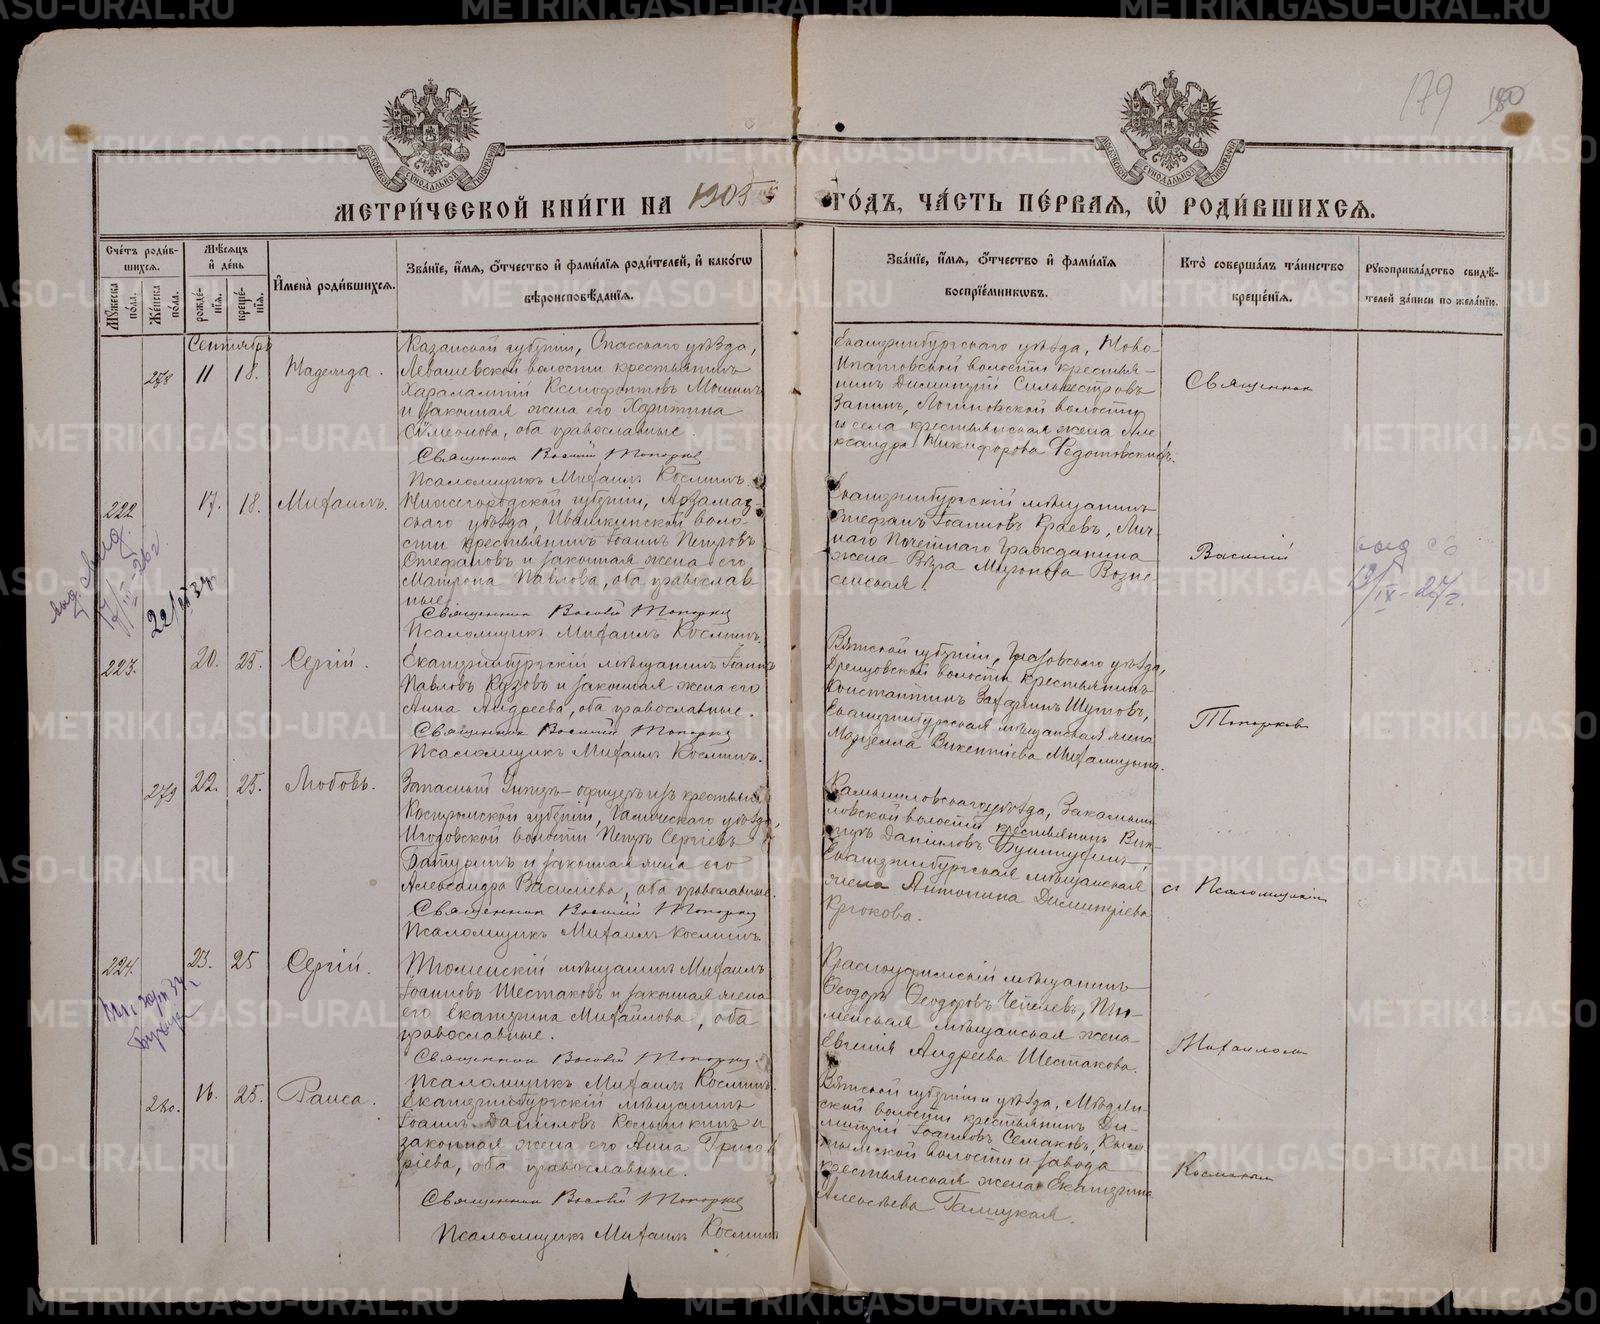 179 180
МЕТРИ́ЧЕСКОЙ КНИ́ГИ НА 1905 ГО́ДЪ, ЧА́СТЬ ПЕ́РВАЯ, Ѡ҆ РОДИ́ВШИХСЯ.
Сче́тъ роди́вшихся.
Мꙋ́жеска по́ла.
Же́нска по́ла.
Мѣ́сяцъ и҆ де́нь
рожде́нїя.
креще́нїя.
И҆мена̀ роди́вшихся.
Зва́нїе, и҆́мя, ѻ҆́тчество и҆ фами́лїя роди́телей, и҆ како́гѡ
вѣроисповѣ́данїя.
Зва́нїе, и҆́мя, ѻ҆́тчество и҆ фами́лїя
воспрїе́мникѡвъ.
Кто̀ соверша́лъ та́инство
креще́нїя.
Рꙋкоприкла́дство свидѣ́-
телей за́писи по жела́нїю.
Сентябрь
278 11 18. Надежда.
Казанской губернiи, Спасскаго уѣзда,
Левашевской волости крестьянинъ
Харалампiй Ксенофонтовъ Мошинъ
и законная жена его Харитина
Сѵмеонова, оба православные.
Священник Василiй Топорков
Псаломщикъ Михаилъ Косминъ.
Екатеринбургскаго уѣзда, Ново-
Ипатовской волости крестья-
нинъ Димитрiй Сильвестровъ
Запинъ, Логиновской волости
и села крестьянская жена Але-
ксандра Никифорова Федотовскихъ.
Священник
222. 17. 18. Михаилъ.
Нижегородской губернiи, Арзамас-
скаго уѣзда, Ивашкинской воло-
сти крестьянинъ Iоаннъ Петровъ
Степановъ и законная жена его
Матрона Павлова, оба православ-
ные.
Священник Василiй Топорков
Псаломщикъ Михаилъ Косминъ.
Екатеринбургскiй мѣщанинъ
Стефанъ Iоанновъ Краевъ, Лич-
наго Почетнаго Гражданина
жена Вѣра Миронова Возне-
сенская.
Василiй
223. 20. 25. Сергiй.
Екатеринбургскiй мѣщанинъ Iоаннъ
Павловъ Кузовъ и законная жена его
Анна Андреева, оба православные.
Священник Василiй Топорков
Псаломщикъ Михаилъ Косминъ.
Вятской губернiи, Глазовскаго уѣзда,
волости крестьянинъ
Константинъ Захаринъ Шутовъ,
Екатеринбургская мѣщанская жена
Марцелла Викентiева Михалицына.
Топорков
279 22. 25. Любовь.
Запасный Унтеръ-офицеръ изъ крестьянъ
Костромской губернiи, Галичскаго уѣзда,
Игодовской волости Петръ Сергiевъ
Батуринъ и законная жена его
Александра Василiева, оба православные.
Священник Василiй Топорков
Псаломщикъ Михаилъ Косминъ.
Камышловскаго уѣзда, Закамыш-
ловской волости крестьянинъ Вик-
торъ Данiиловъ
Екатеринбургская мѣщанская
жена Антонина Димитрiева
Крюкова.
с Псаломщиком
224. 23. 25 Сергiй.
Тюменскiй мѣщанинъ Михаилъ
Iоанновъ Шестаковъ и законная жена
его Екатерина Михаилова, оба
православные.
Священник Василiй Топорков.
Псаломщикъ Михаилъ Косминъ.
Красноуфимскiй мѣщанинъ
Ѳеодоръ Ѳеодоровъ Чепелевъ, Тю-
менская мѣщанская жена
Евгенiя Андреева Шестакова.
Михаилом
280. 16. 25. Раиса.
Екатеринбургскiй мѣщанинъ
Iоаннъ Данiиловъ Колышкинъ и
законная жена его Анна Григо-
рiева, оба православные.
Священник Василiй Топорков
Псаломщикъ Михаилъ Косминъ
Вятской губернiи и уѣзда,
волости крестьянинъ Ди-
митрiй Iоанновъ Семаковъ, Кыш-
тымской волости и завода
крестьянская жена Екатерина
Алексѣева Галицкая.
Косминым
METRIKI.GASO-URAL.RU